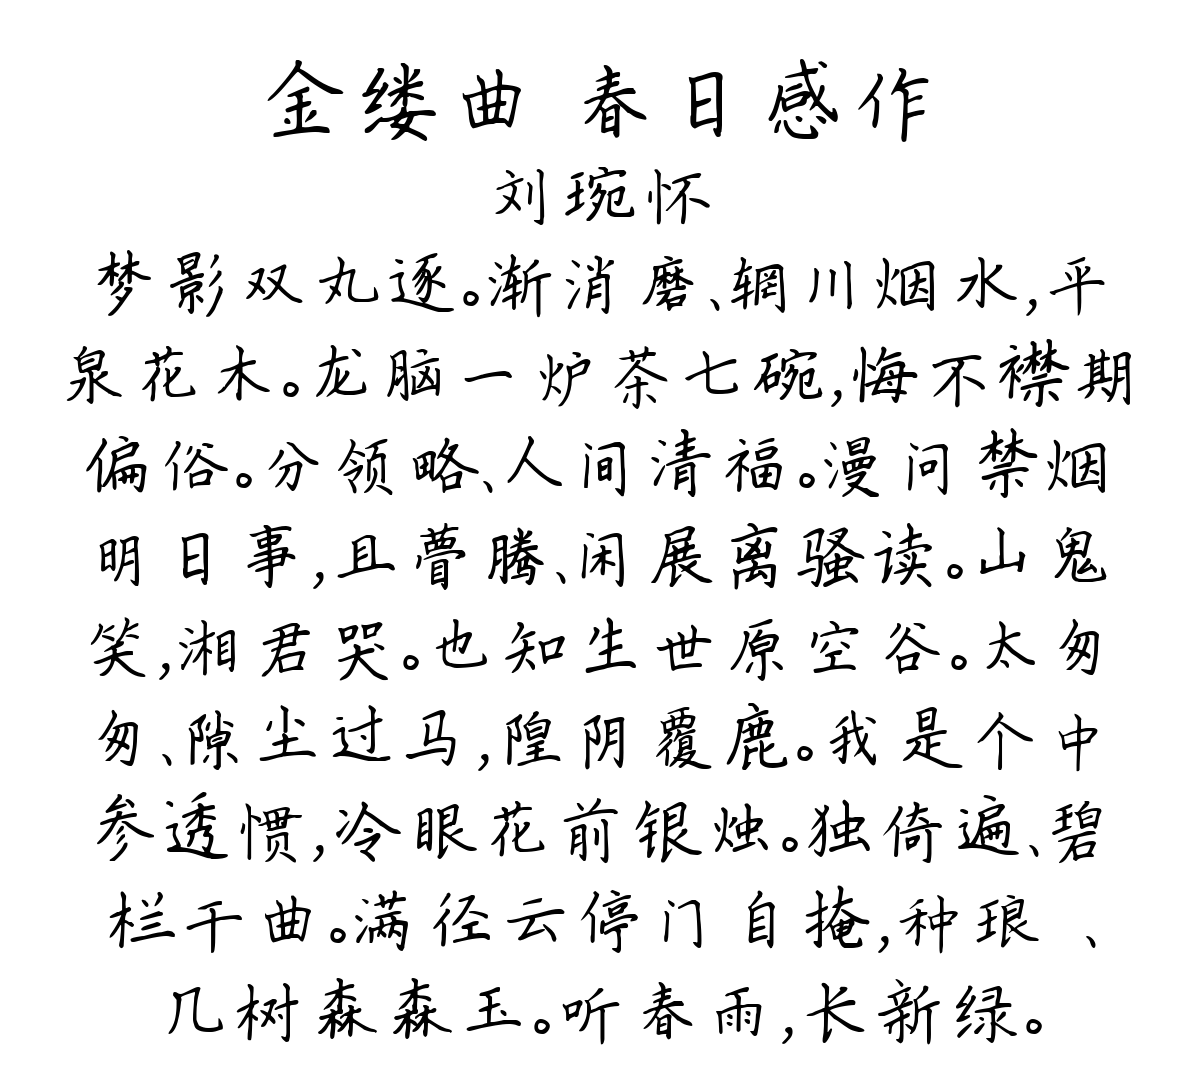 金缕曲 春日感作
刘琬怀
梦影双丸逐。渐消磨、辋川烟水,平
泉花木。龙脑一炉茶七碗,悔不襟期
偏俗。分领略、人间清福。漫问禁烟
明日事,且瞢腾、闲展离骚读。山鬼
笑,湘君哭。也知生世原空谷。太匆
匆、隙尘过马,隍阴覆鹿。我是个中
参透惯,冷眼花前银烛。独倚遍、碧
栏干曲。满径云停门自掩,种琅 、
几树森森玉。听春雨,长新绿。